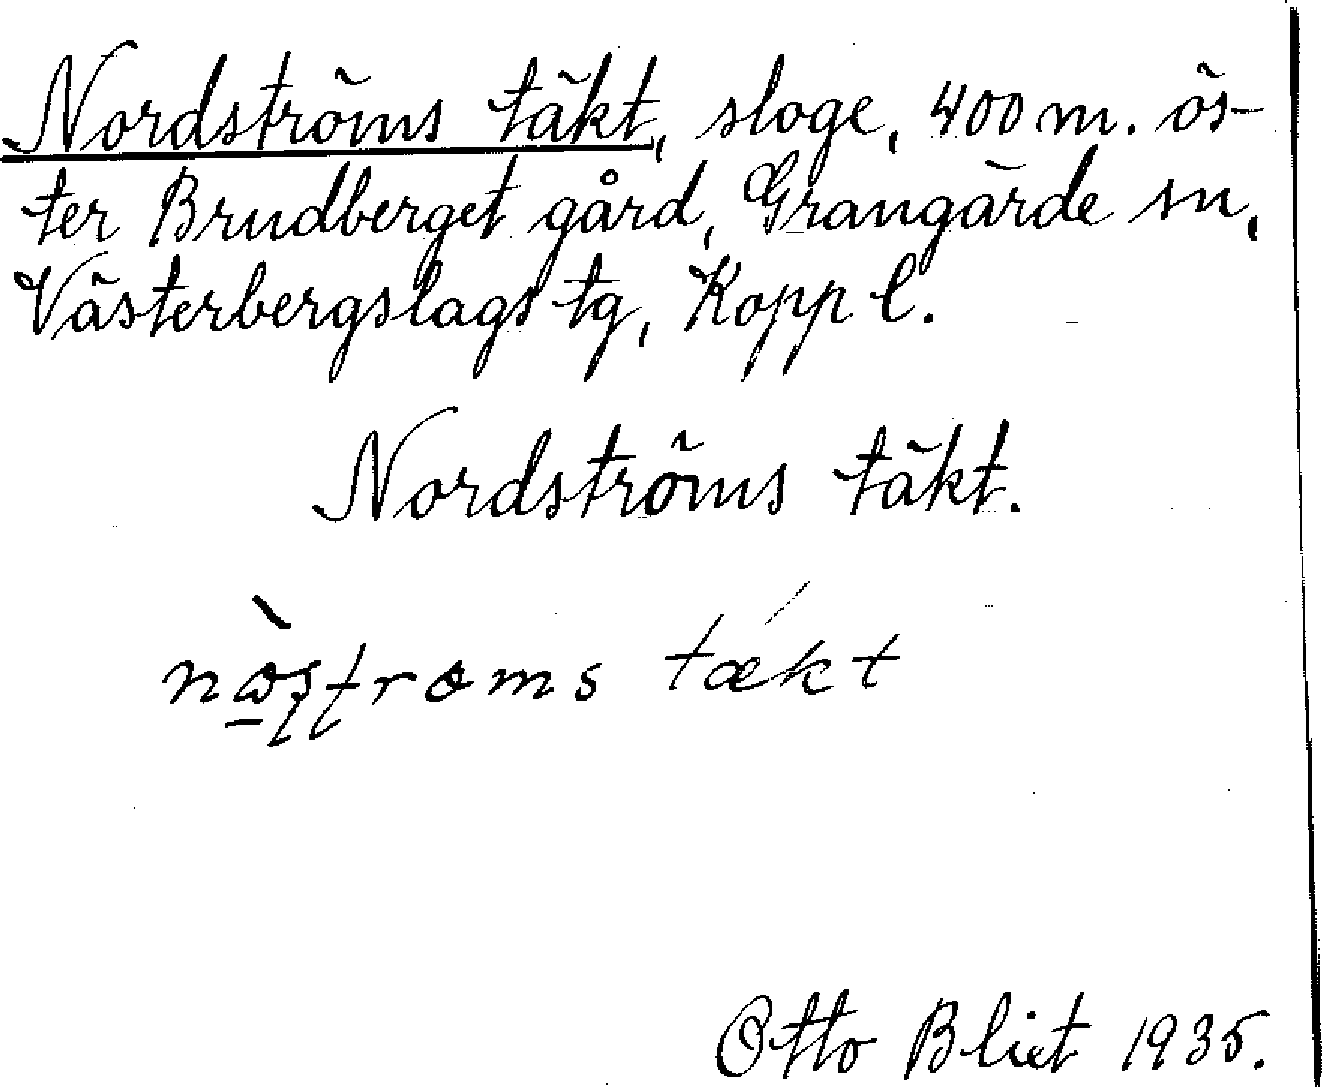 Nordströms täkt, sloge, 400 m. ös-
ter Brudberget gård, Grangärde sn,
Västerbergslags tg, Kopp l.
Nordströms täkt.
tækt
Otto Bliet 1935.